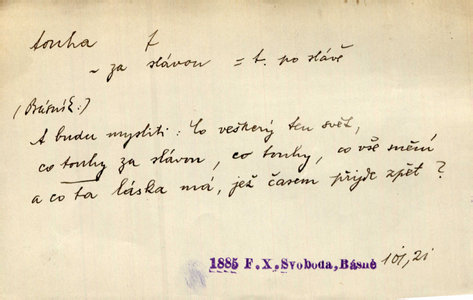 touha f
~ za slávou = t. po slávě
(Básník:)
A budu mysliti: Co veškerý ten svět,
co touhy za slávou, co touhy, co vše mění
a co ta láska má, jež časem přijde zpět?
1885 F.X.Svoboda,Básně 101,21